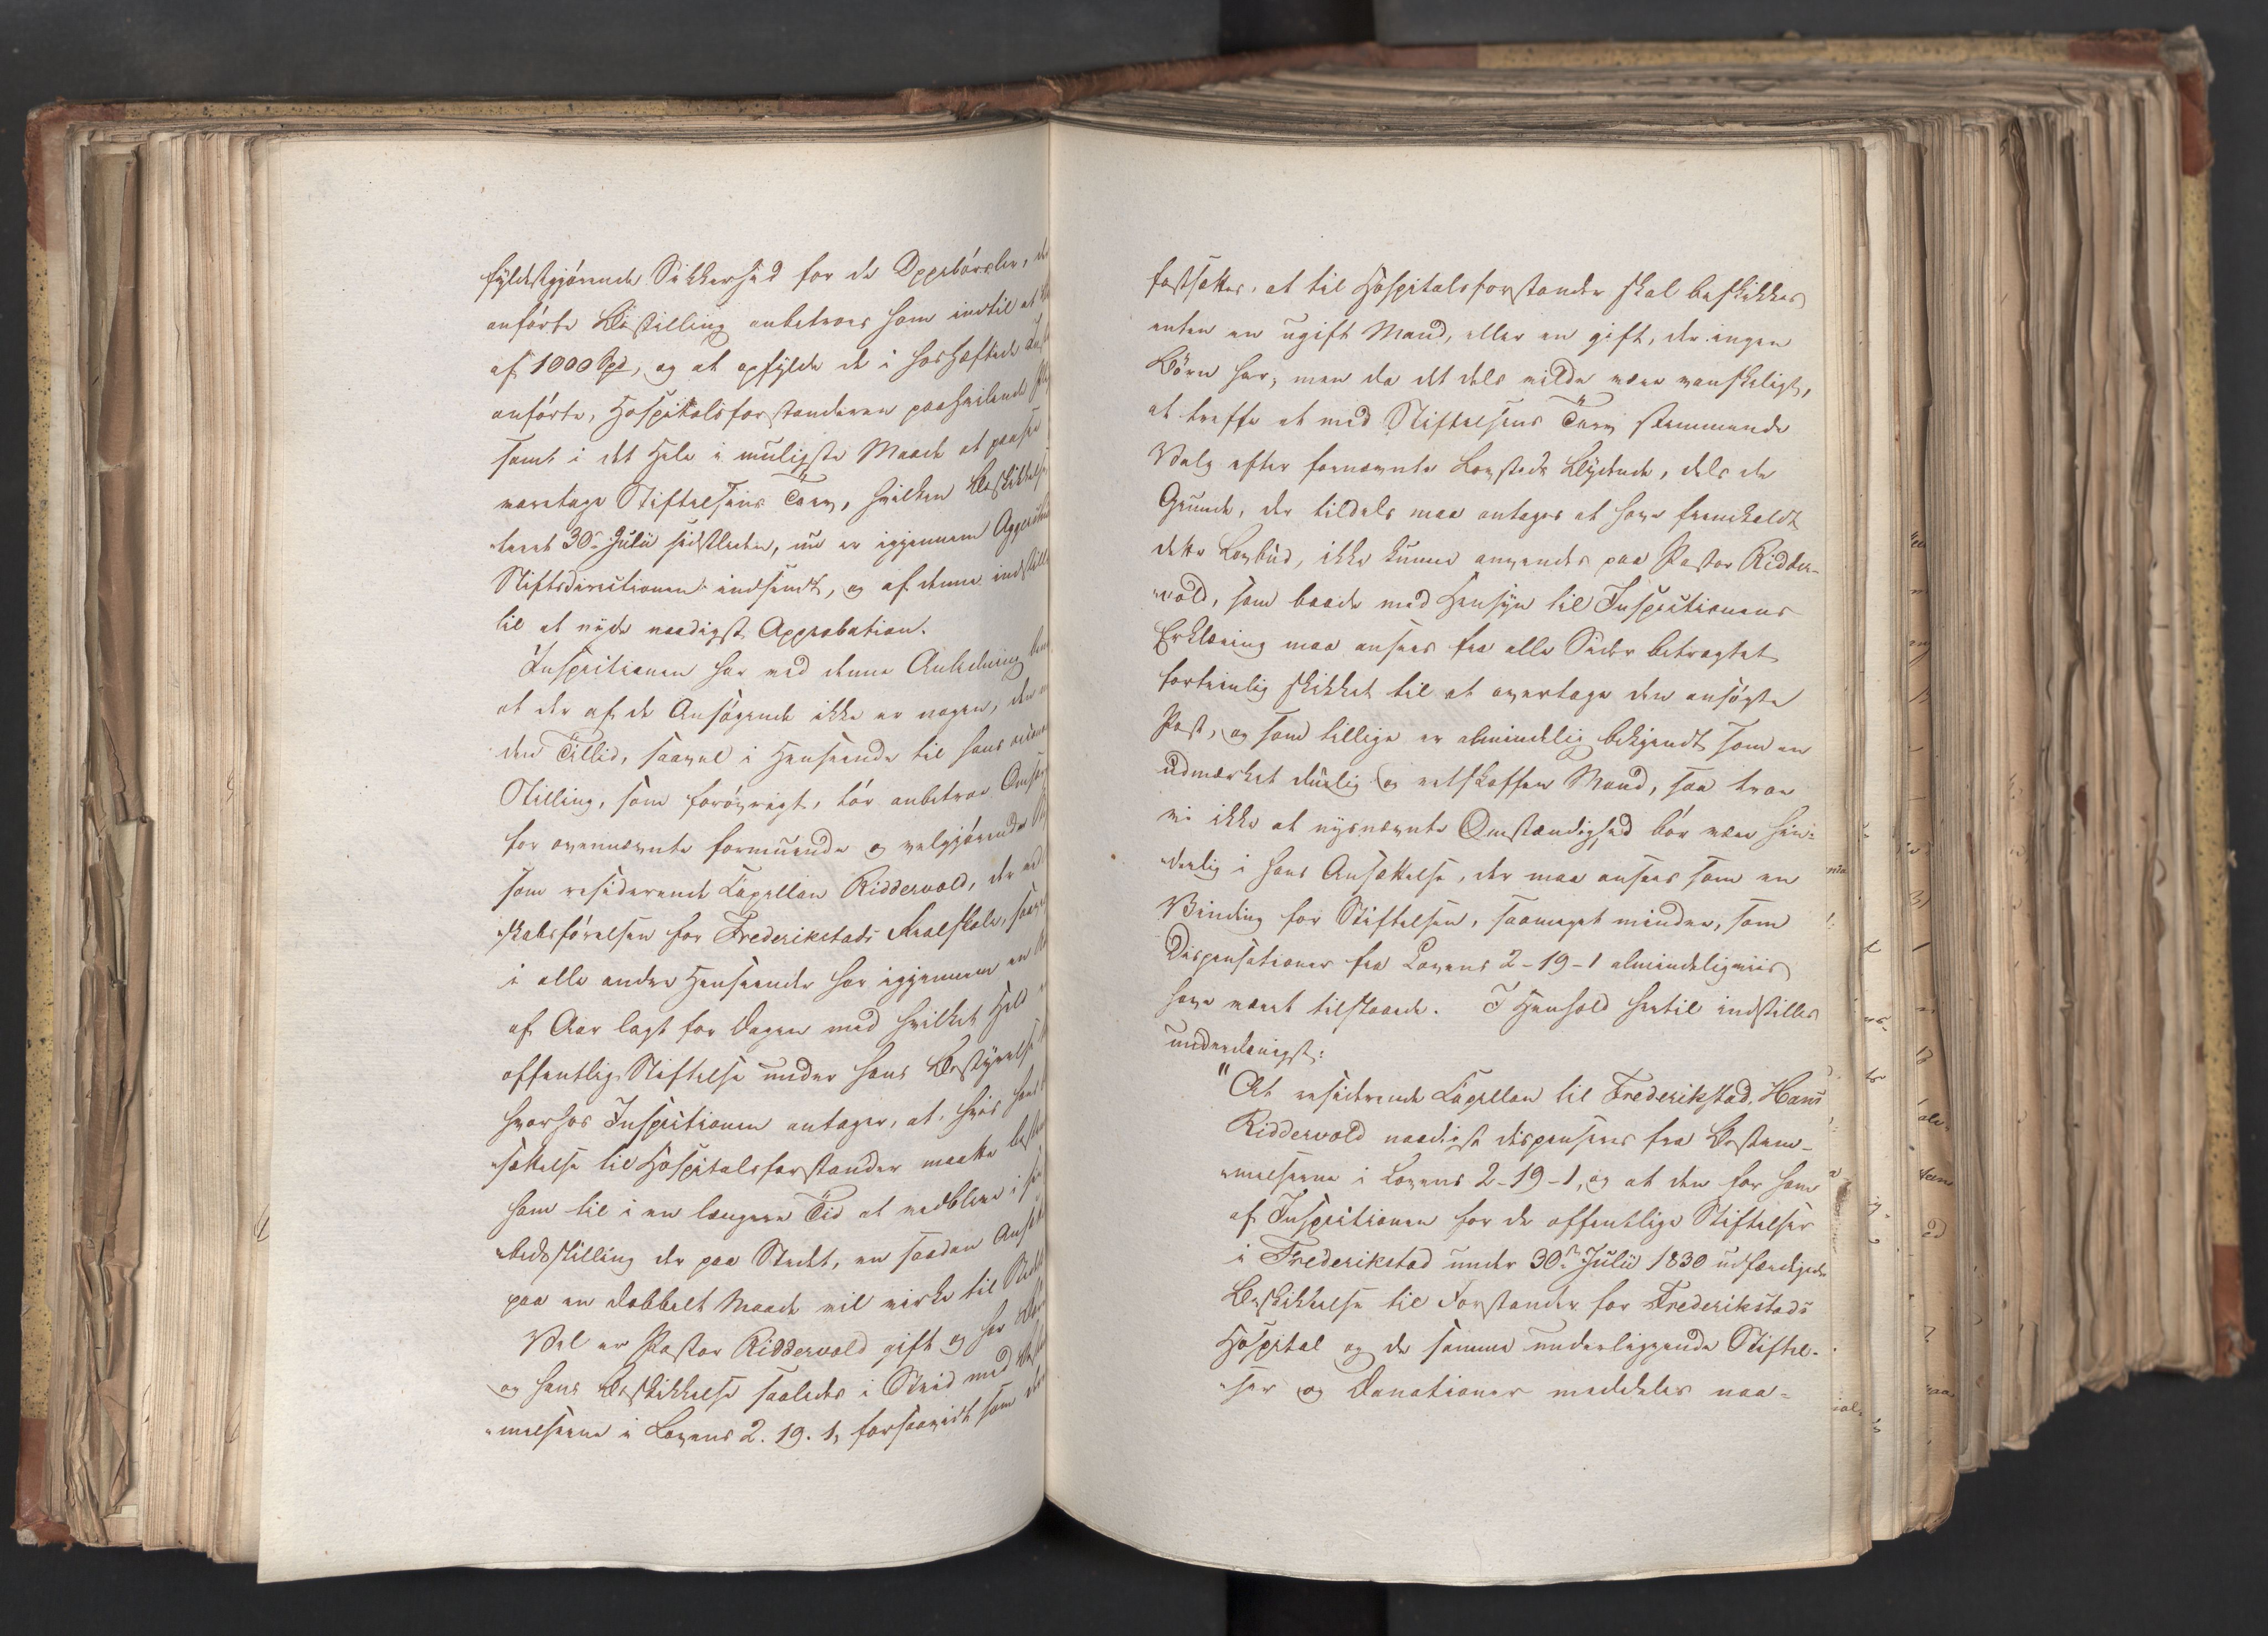 fyldestgjørende Sikkerhed for de Oppebørsler, de
anførte Bestilling anbetroes ham indtil et
af 1000 Spd, og at opfylde de i hoshæftede
anførte, Hospitalsforstanderen paahvilende
samt i det Hele i muligste Maade at paasee
varetage Stiftelsens Tarv, hvilken Beskikkelse
teret 30te Julii sidstleden, nu er igjennem Aggershuus
Stiftsdirectionen indsendt, og af denne indstillet
til at nyde naadigst Approbation.
Inspectionen har ved denne Anledning
at der af de Ansøgende ikke er nogen, den
den Tillid, saavel i Henseende til hans
Stilling, som forøvrigt, tør anbetroe Omsorg
for ovennævnte formuende og velgjørende
som residerende Capellan Riddervold, der ved
skabsførelsen for Frederikstads Realskole, saavel
i alle andre Henseender har igjennem en
af Aar lagt for Dagen med hvilket Held
offentlig Stiftelse under hans Bestyrelse
hvorhos Inspectionen antager, at, hvis hans
sættelse til Hospitalsforstander maatte
ham til i en længere Tid at vedblive i
bedsstilling der paa Stedet, en saadan
paa en dobbelt Maade vil virke til
Vel er Pastor Riddervold gift og har
og hans Beskikkelse saaledes i Strid med
melserne i Lovens 2. 19. 1, forsaavidt som der
fastsættes, at til Hospitalsforstander skal beskikkes
enten en ugift Mand, eller en gift, der ingen
Børn har, men da det dels vilde være vanskeligt,
at træffe et med Stiftelsens Tarv stemmende
Valg efter fornævnte Lovsteds Lydende, dels de
Grunde, der tildels maa antages at have fremkaldt
dette Lovbud, ikke kunne anvendes paa Pastor Ridder-
vold, som baade med Hensyn til Inspectionens
Erklæring maa ansees fra alle Sider betragtet
fortrinlig skikket til at overtage den ansøgte
Post, og som tillige er almindelig bekjendt som en
udmærket duelig og retskaffen Mand, saa troe
vi ikke at nysnævnte Omstændighed bør være hin-
derlig i hans Ansættelse, der maa ansees som en
Vinding for Stiftelsen, saameget mindre, som
Dispensationer fra Lovens 2-19-1 almindeligviis
have været tilstaaede. I Henhold hertil indstilles
underdanigst:
"At residerende Capellan til Frederikstad, Hans
Riddervold naadigst dispenseres fra Bestem-
melserne i Lovens 2-19-1, og at den for ham
af Inspectionen for de offentlige Stiftelser
i Frederikstad under 30te Julii 1830 udfærdigede
Beskikkelse til Forstander for Frederikstads
Hospital og de samme underliggende Stiftel-
ser og Donationer meddeles naa-